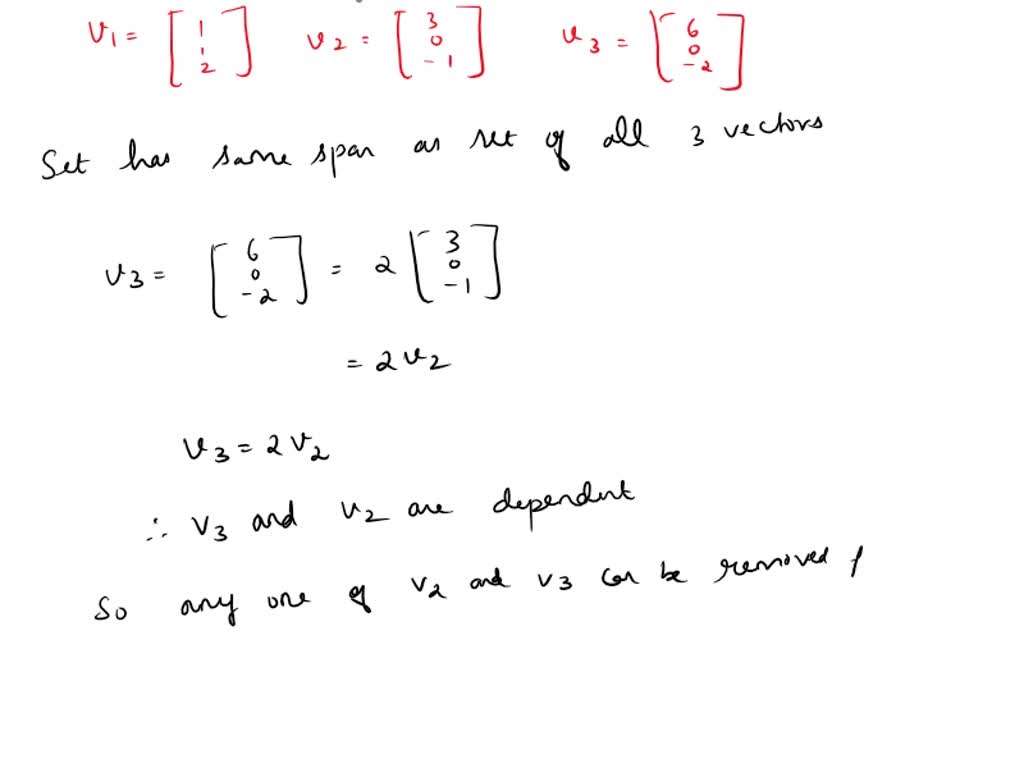 V1 = [1 1 2] V2 = [3 0 -1] V3 = [6 0 -2]
Set has same span as set of all 3 vectors
V3 = [6 0 -2] = 2 [3 0 -1]
= 2V2
V3 = 2V2
∴ V3 and V2 are dependent
So any one of V2 and V3 can be removed f